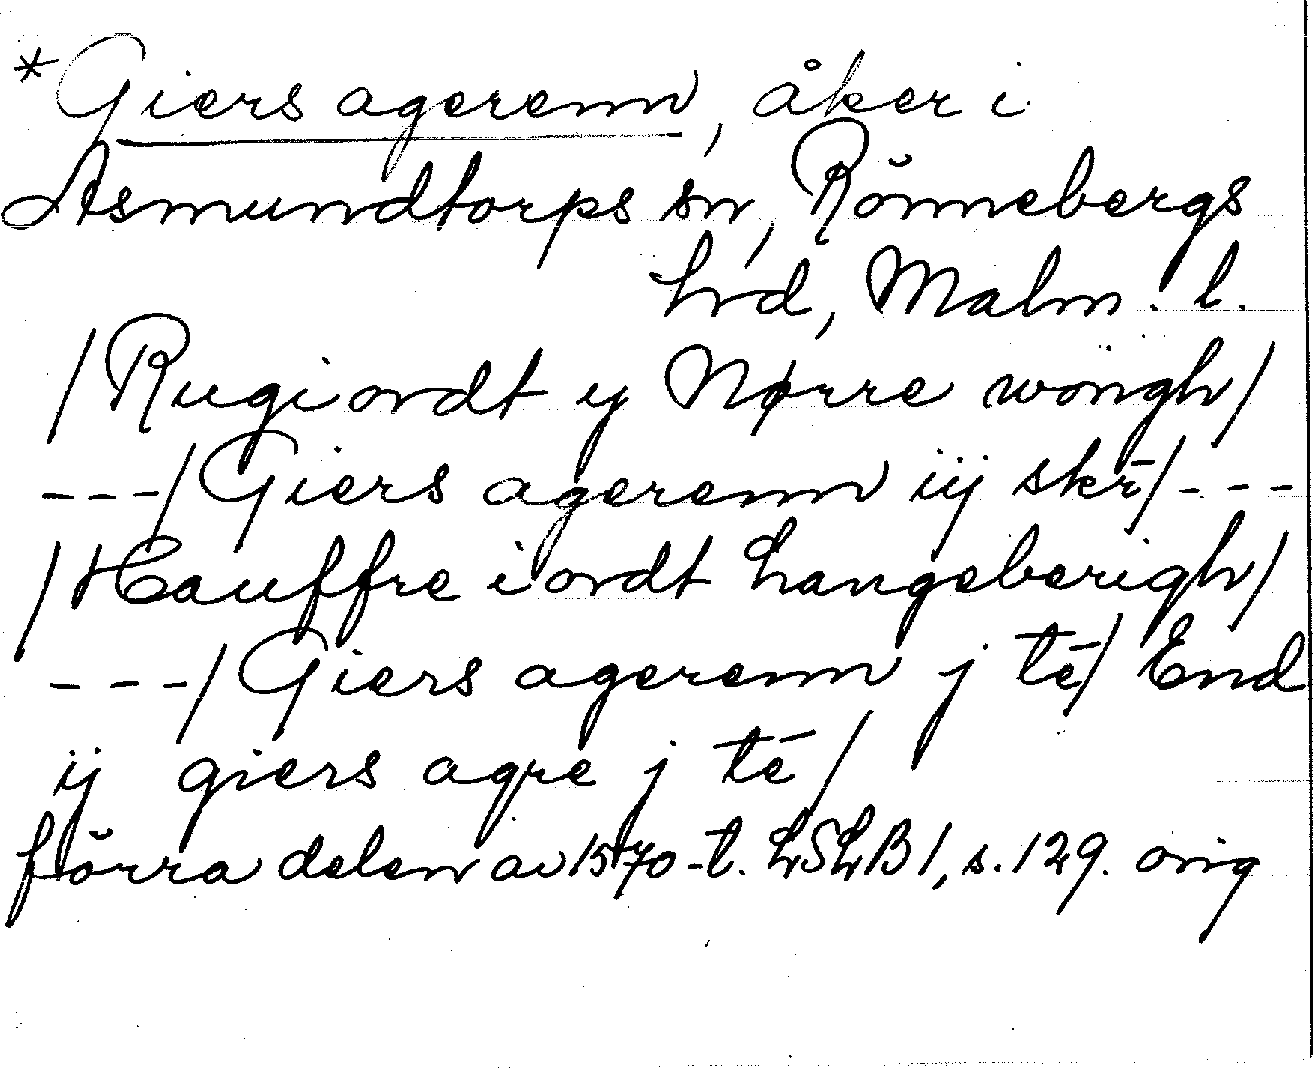 *Giers agerenn, åker i
Asmundtorps sn, Rönnebergs
hrd, Malm. l.
/Rugiordt y Nørre wongh/
---/Giers agerenn iij skr̄/---
/Hauffre iordt hangeberigh/
---/Giers agerenn j tē/ End
ij giers agre j tē/
förra delen av 1570-t. LSLB 1, s. 129. orig